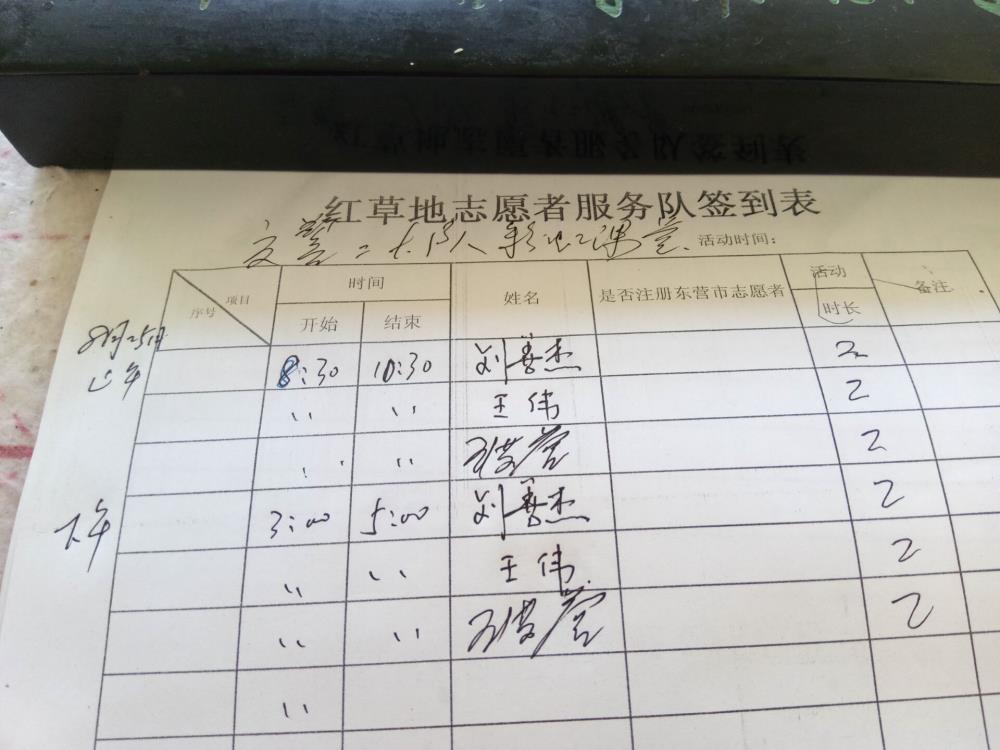 红草地志愿者服务队签到表
交警二大队彩虹课堂 活动时间:
项目 序号 时间 姓名 是否注册东营市志愿者 活动时长 备注
开始 结束
8月25日
上午 8:30 10:30 刘善杰 2
〃 〃 王伟 2
〃 〃 2
下午 3:00 5:00 刘善杰 2
〃 〃 王伟 2
〃 〃 2
〃